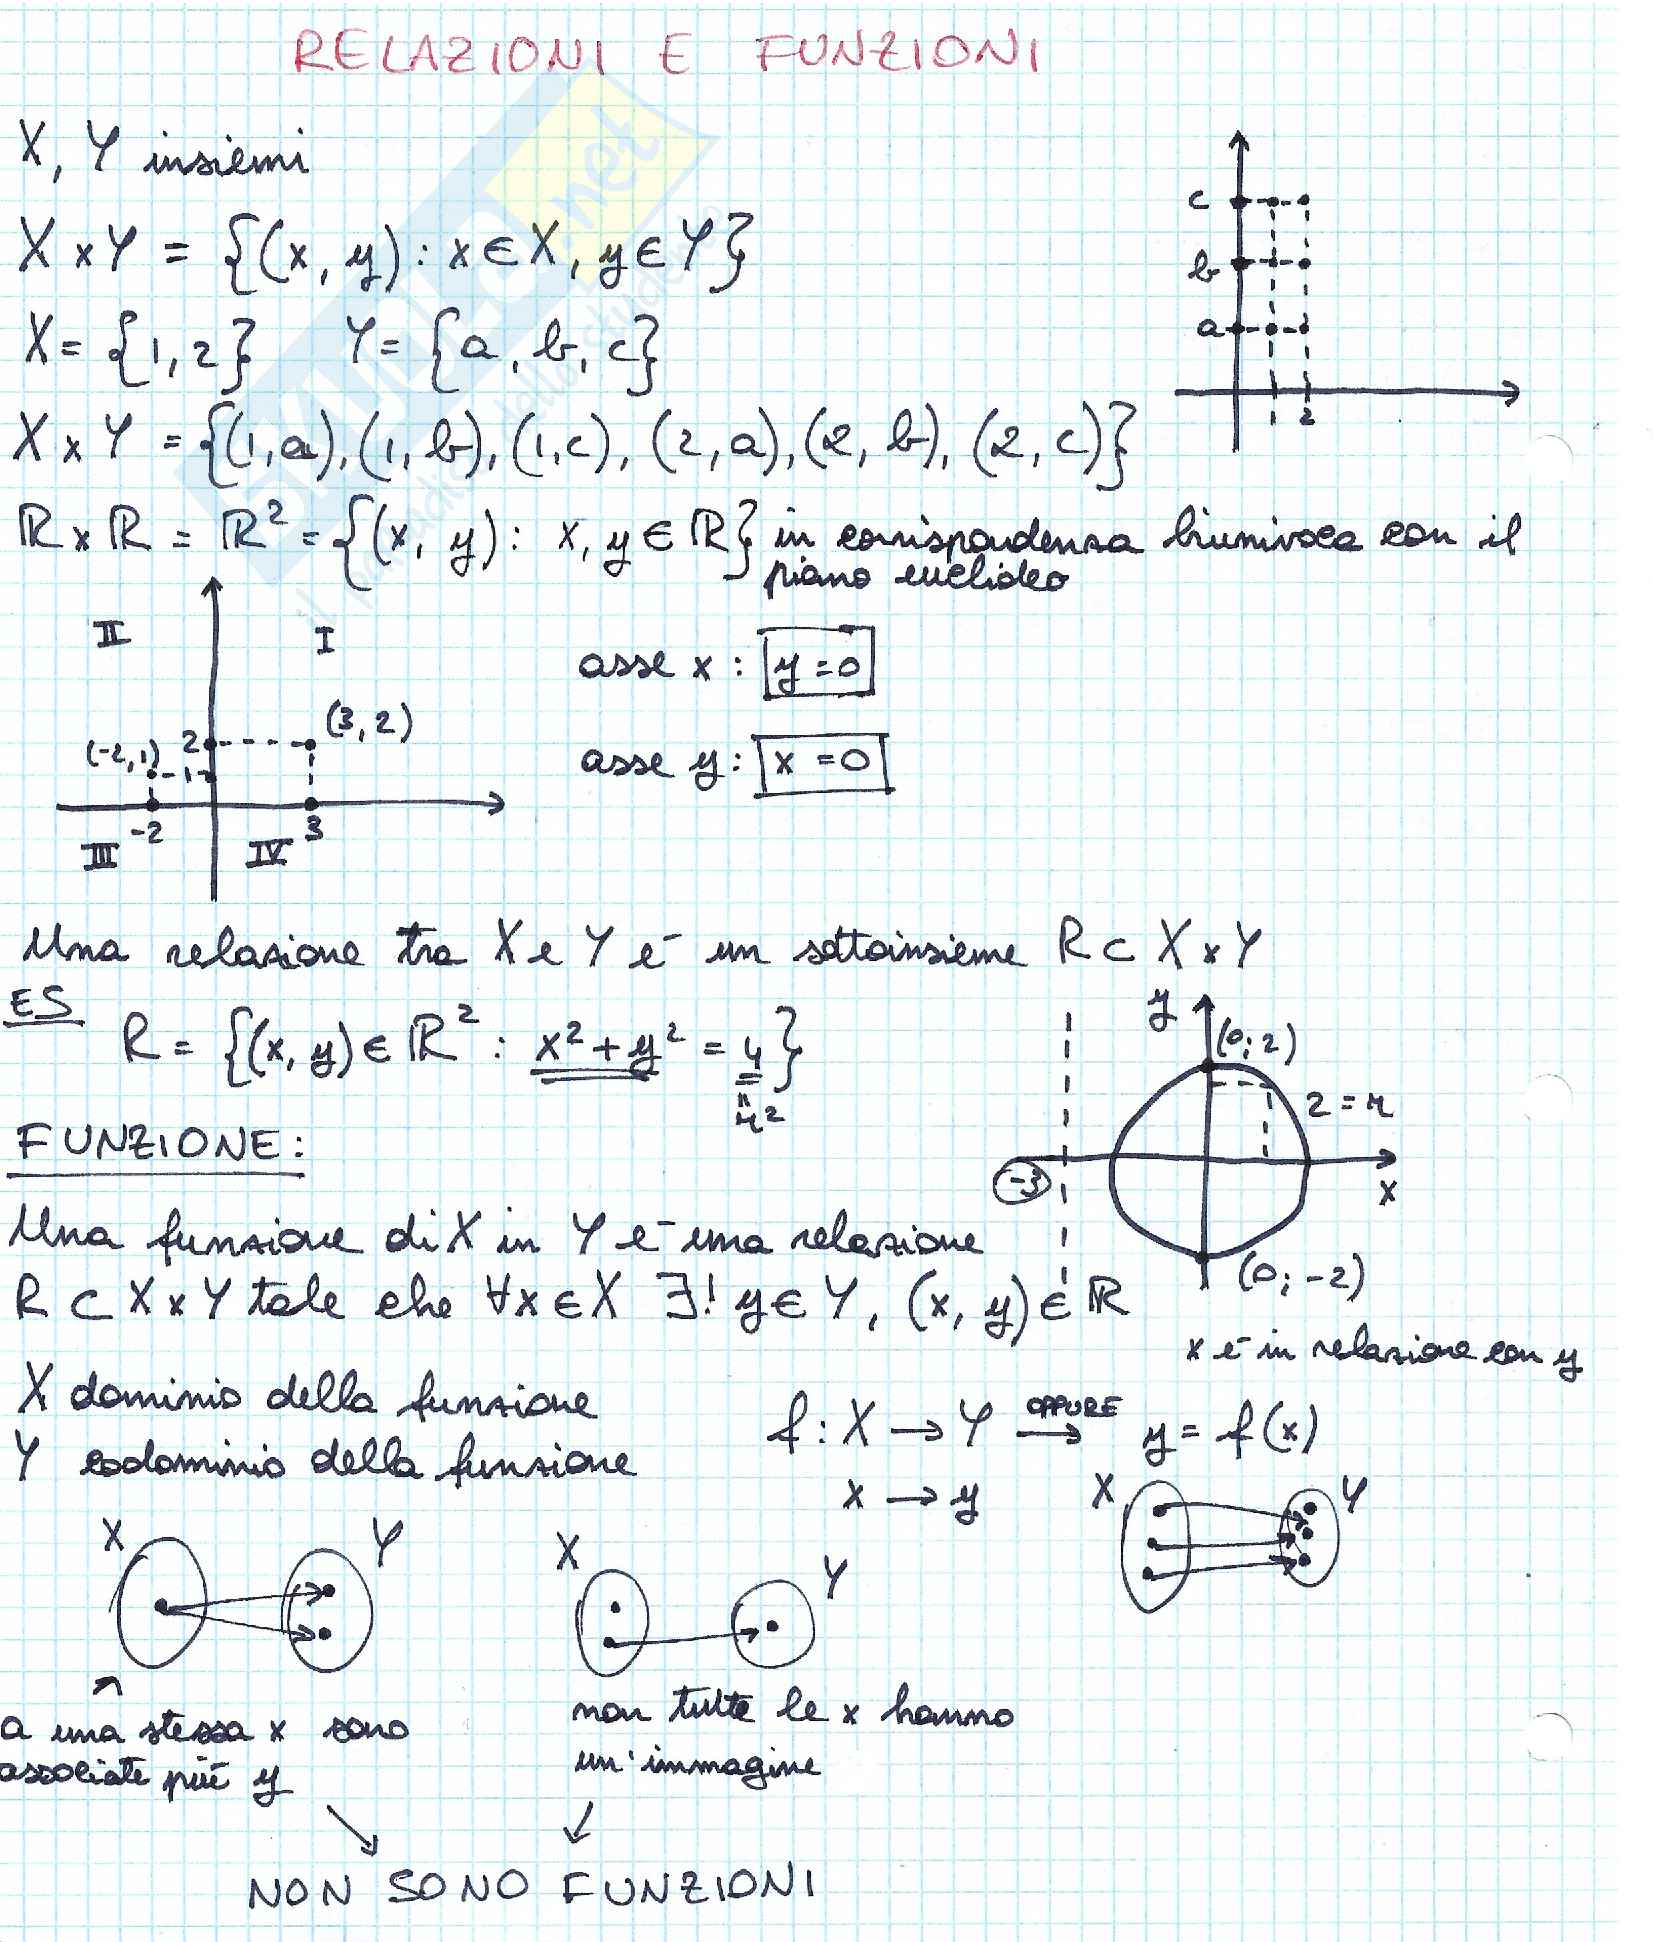 RELAZIONI E FUNZIONI
X, Y insiemi
X x Y = {(x, y) : x ∈ X, y ∈ Y}
X = {1, 2} Y = {a, b, c}
X x Y = {(1, a), (1, b), (1, c), (2, a), (2, b), (2, c)}
c
b
a
1 2
ℝ x ℝ = ℝ² = {(x, y) : x, y ∈ ℝ} in corrispondenza biunivoca con il
piano euclideo
II I
(3, 2)
(-2, 1) 2
1
-2 3
III IV
asse x : y = 0
asse y : x = 0
Una relazione tra X e Y è un sottoinsieme R ⊂ X x Y
ES
R = {(x, y) ∈ ℝ² : x² + y² = 4}
"
r²
y
(0; 2)
2 = r
-3
x
(0; -2)
FUNZIONE:
Una funzione di X in Y è una relazione
R ⊂ X x Y tale che ∀x ∈ X ∃! y ∈ Y, (x, y) ∈ ℝ
x è in relazione con y
X dominio della funzione
Y codominio della funzione
f : X → Y OPPURE → y = f(x)
x → y
X Y
X Y
X Y
a una stessa x sono
associate più y
non tutte le x hanno
un'immagine
NON SONO FUNZIONI
SKUOLA.net
il paradiso dello studente